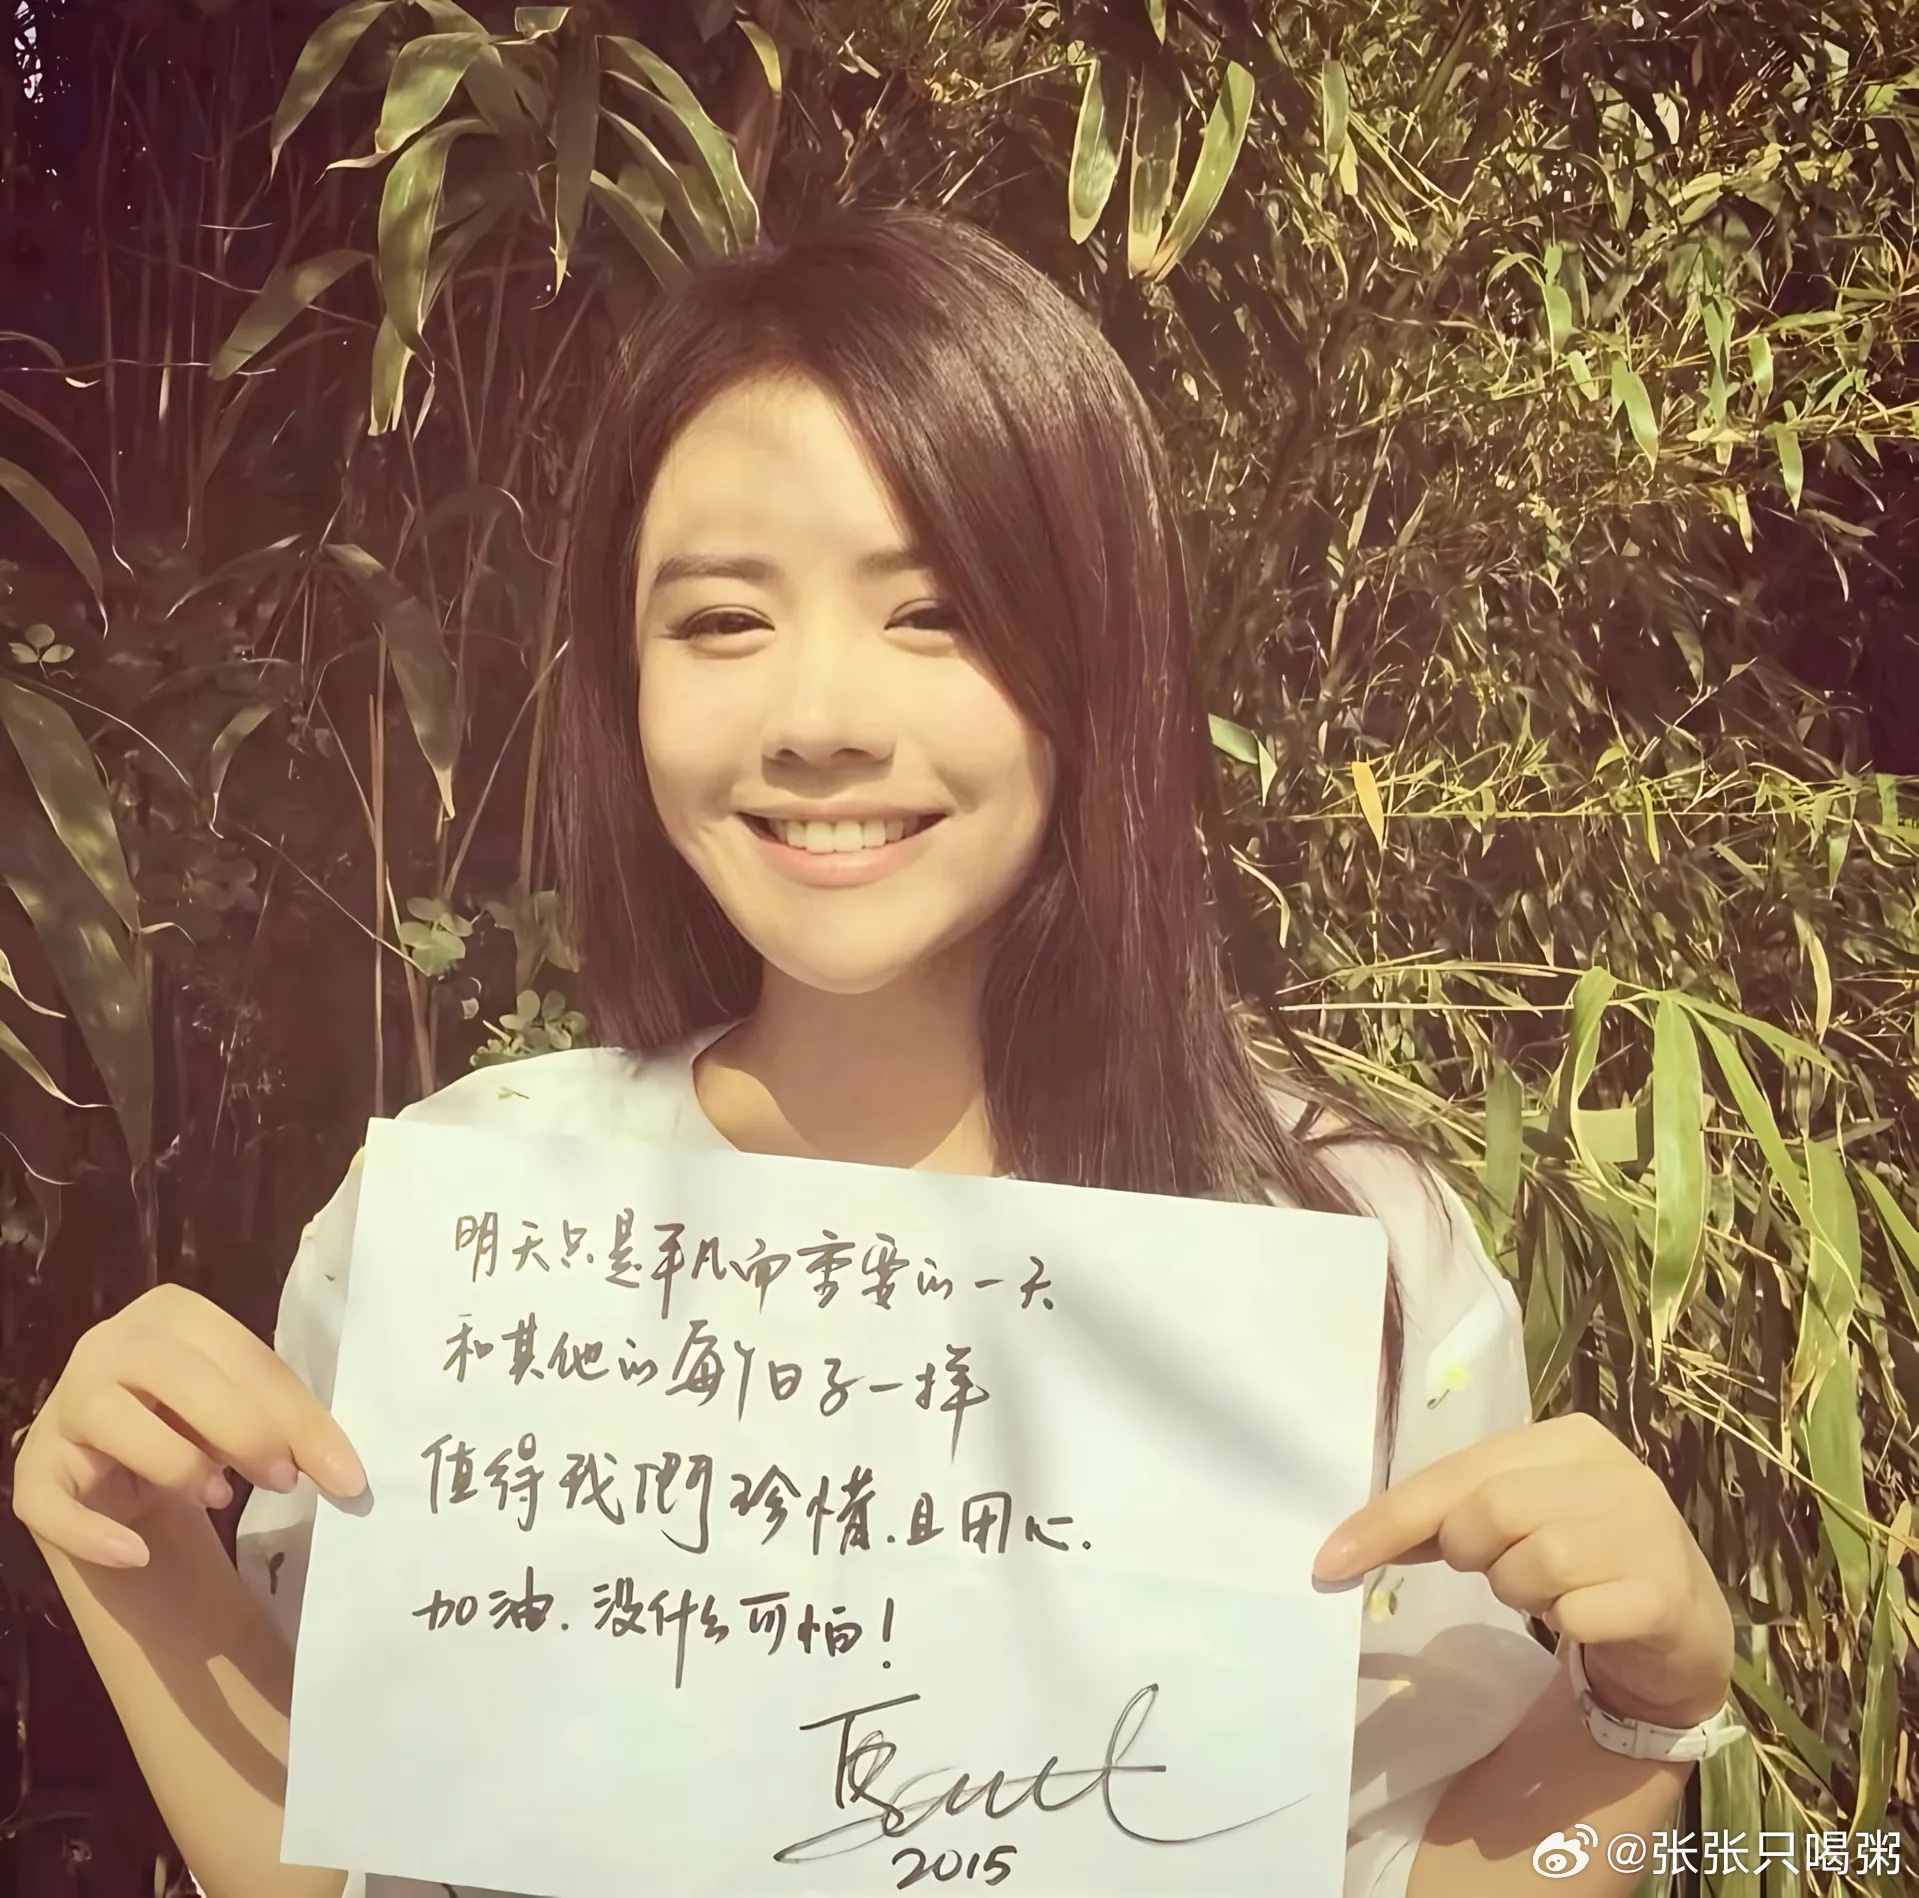 明天只是平凡而重要的一天
和其他的每个日子一样
值得我们珍惜.且用心.
加油.没什么可怕!
2015
@张张只喝粥